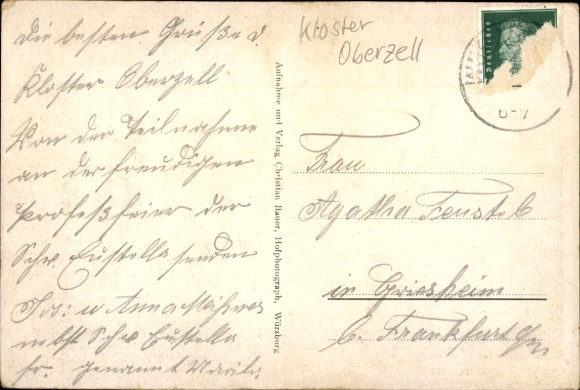 Die besten Grüße d.
Kloster Oberzell
Von der Teilnahme
an der freudigen
Profeßfeier der
Schw Eustella senden
Jos: u Anna
nebst Schw Eustella
fr. genannt
Kloster
Oberzell
Aufnahme und Verlag Christian Bauer, Hofphotograph, Würzburg
Deutsches
6-7
Frau
Agatha
in Griesheim
b. Frankfurt a/m